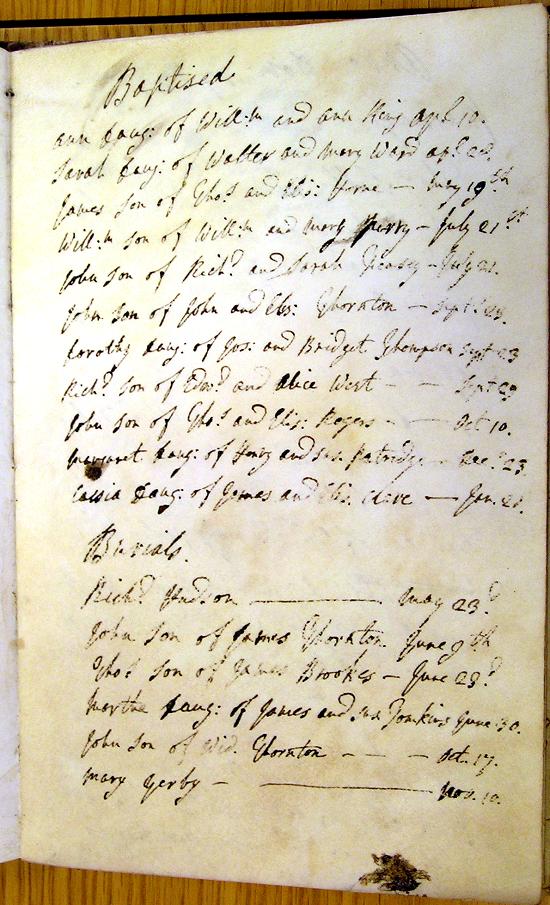 Baptised
Ann Daug: of Will:m and Ann King Apl 10.
Sarah Daug: of Walter and Mary Ward Apl 28.
James Son of Tho:s and Elis: Horne — May 19th
Will:m Son of Will:m and Mary — July 21st
John Son of Rich:d and Sarah — July 21.
John Son of John and Elis: Thornton — Sept:
Dorothy Daug: of Jos: and Bridget Thompson Sept 23
Rich:d Son of Edw:d and Alice West — — Sept 29
John Son of Tho:s and Elis: Rogers — — Oct 10.
Margaret Daug: of Henry and Sus. Patridge — Dec:r 23.
Daug: of James and Elis: Cleve — Jan. 28.
Burials.
Rich:d Hudson — May 23d
John Son of James Thornton June 9th
Tho:s Son of James Brookes — June 23d
Marthe Daug: of James and Sus Jomkins June 30.
John Son of Wid. Thornton — — — Oct. 17.
Mary Yerby — — Nov. 10.